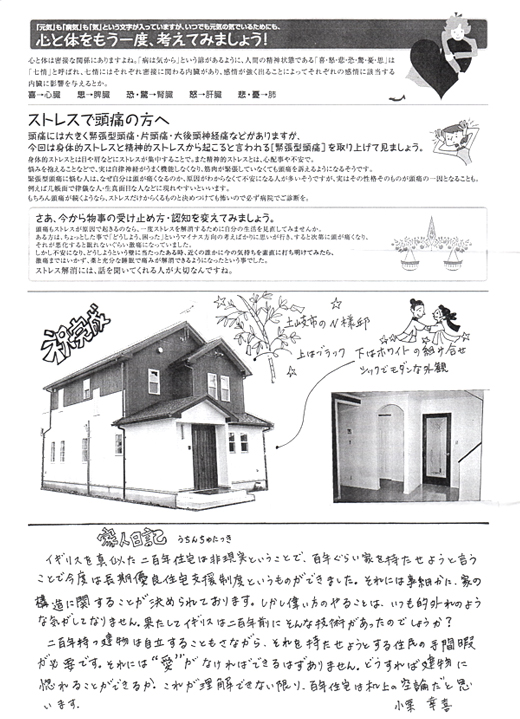 「元気」も「病気」も「気」という文字が入っていますが、いつでも元気の気でいるためにも、
心と体をもう一度、考えてみましょう!
心と体は密接な関係にありますよね。「病は気から」という諺があるように、人間の精神状態である「喜・怒・悲・恐・驚・憂・思」は
「七情」と呼ばれ、七情にはそれぞれ密接に関わる内臓があり、感情が強く出ることによってそれぞれの感情に該当する
内臓に影響を与えるとか。
喜→心臓 思→脾臓 恐・驚→腎臓 怒→肝臓 悲・憂→肺
ストレスで頭痛の方へ
頭痛には大きく緊張型頭痛・片頭痛・大後頭神経痛などがありますが、
今回は身体的ストレスと精神的ストレスから起こると言われる【緊張型頭痛】を取り上げて見ましょう。
身体的ストレスとは目や肩などにストレスが集中することで、また精神的ストレスとは、心配事や不安で、
悩みを抱えることなどで、実は自律神経がうまく機能しなくなり、筋肉が緊張していなくても頭痛を訴えるようになるそうです。
緊張型頭痛に悩む人は、なぜ自分は頭が痛くなるのか、原因がわからなくて不安になる人が多いそうですが、実はその性格そのものが頭痛の一因となることも。
例えば几帳面で律儀な人・生真面目な人などに現れやすいといいます。
もちろん頭痛が続くようなら、ストレスだけからくるものと決めつけても怖いので必ず病院でご診断を。
さあ、今から物事の受け止め方・認知を変えてみましょう。
頭痛もストレスが原因で起きるのなら、一度ストレスを解消するために自分の生活を見直してみませんか。
ある方は、ちょっとした事で「どうしよう、困った」というマイナス方向の考えばかりに思いが行き、すると次第に頭が痛くなり、
それが悪化すると眠れないぐらい激痛になっていました。
しかし安不になり、どうしようという壁に当たったある時、近くの誰かに今の気持ちを素直に打ち明けてみたら、
激痛まではいかず、薬と充分な睡眠で痛みが解消できるようになったという事でした。
ストレス解消には、話を聞いてくれる人が大切なんですね。
祝完成
土岐市のN様邸
上はブラック 下はホワイトの組み合せ
シックでモダンな外観
人日記 うちんちゅたっき
イギリスを真似た二百年住宅は非現実ということで、百年ぐらい家を持たせようと言う
ことで今度は長期優良住宅支援制度というものができました。それには事細かに、家の
構造に関することが決められております。しかし偉い方のやることは、いつも的外れのよう
な気がしてなりません。果たしてイギリスは二百年前にそんな技術があったのでしょうか?
二百年持つ建物は自立することもさながら、それを持たせようとする住民の手間暇
が必要です。それには"愛"がなければできるはずありません。どうすれば建物に
惚れることができるか、これが理解できない限り、百年住宅は机上の空論だと思
います。 小栗 幸喜